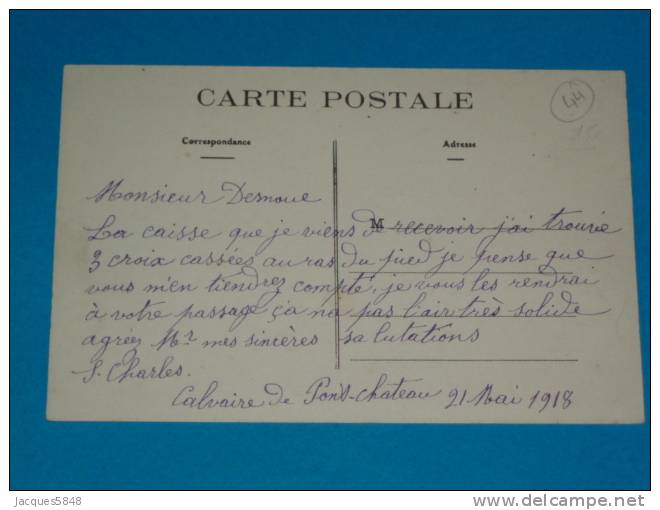 CARTE POSTALE
44
Correspondance
Adresse
Monsieur Desnoue
M
La caisse que je viens de recevoir j'ai trouvé
3 croix cassées au ras du pied je pense que
vous m'en tiendrez compte, je vous les rendrai
à votre passage ça na pas l'air très solide
agréez Mr mes sincères salutations
S. Charles.
Calvaire de Pont-chateau 21 Mai 1918
Jacques5848
delcampe.net